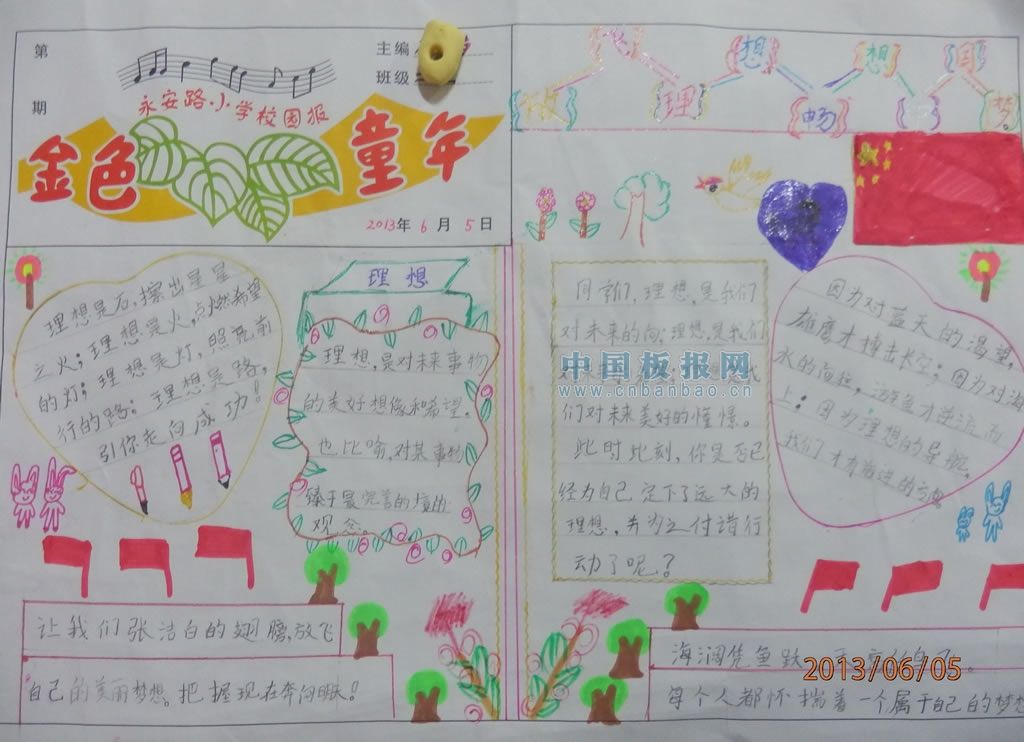 第
期
主编
班级
永安路小学校园报
金色童年
2013年6月5日
放飞理想畅想国梦。
理想是石,擦出星星
之火;理想是火,点燃希望
的灯;理想是灯,照亮前
行的路;理想是路,
引你走向成功!
理想
理想,是对未来事物
的美好想像和希望。
也比喻,对某事物
臻于最完善的境的
观念。
同学们,理想,是我们
对未来的向;理想,是我们
们对未来美好的憧憬。
此时此刻,你是否已
经为自己定下了远大的
理想,并为之付诸行
动了呢?
因为对蓝天的渴望,
雄鹰才搏击长空;因为对海
水的
上;因为理想的导航,
我们才有前进的方向
中国板报网
www.cnbanbao.cn
让我们张洁白的翅膀,放飞
自己的美丽梦想。把握现在奔向明天!
海阔凭鱼跃
每个人都怀揣着一个属于自己的梦想
2013/06/05